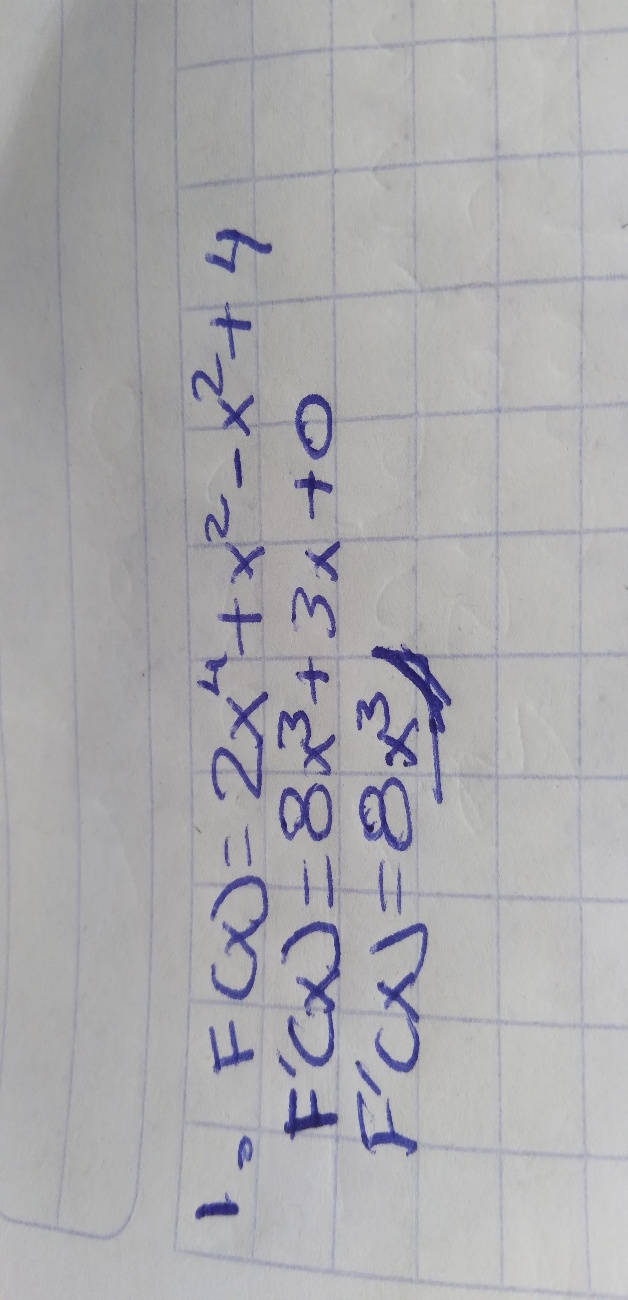 1. F(x) = 2x⁴ + x² - x² + 4
F'(x) = 8x³ + 3x + 0
F'(x) = 8x³